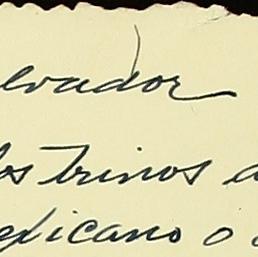 lvador
los trinos a
exicano o